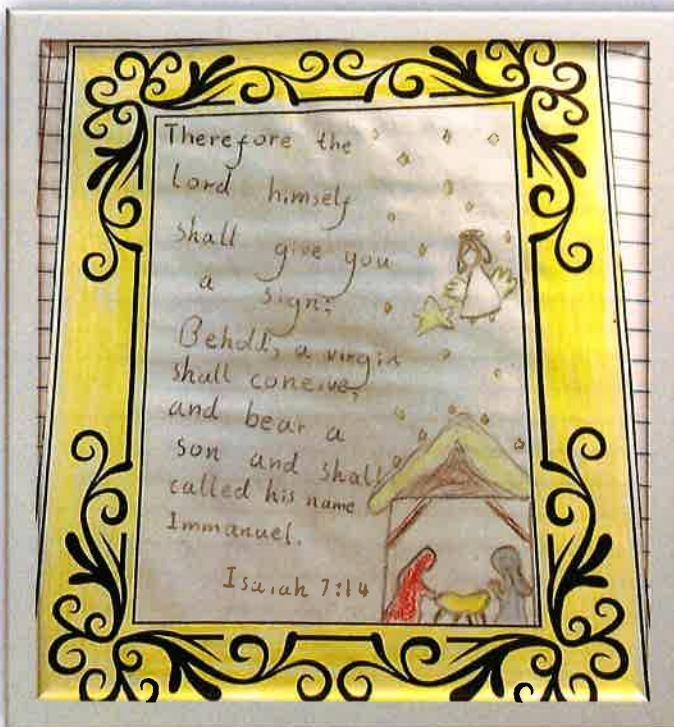 Therefore the
Lord himself
shall give you
a sign:
Behold, a virgin
shall conceive,
and bear a
son and shall
called his name
Immanuel.
Isaiah 7:14